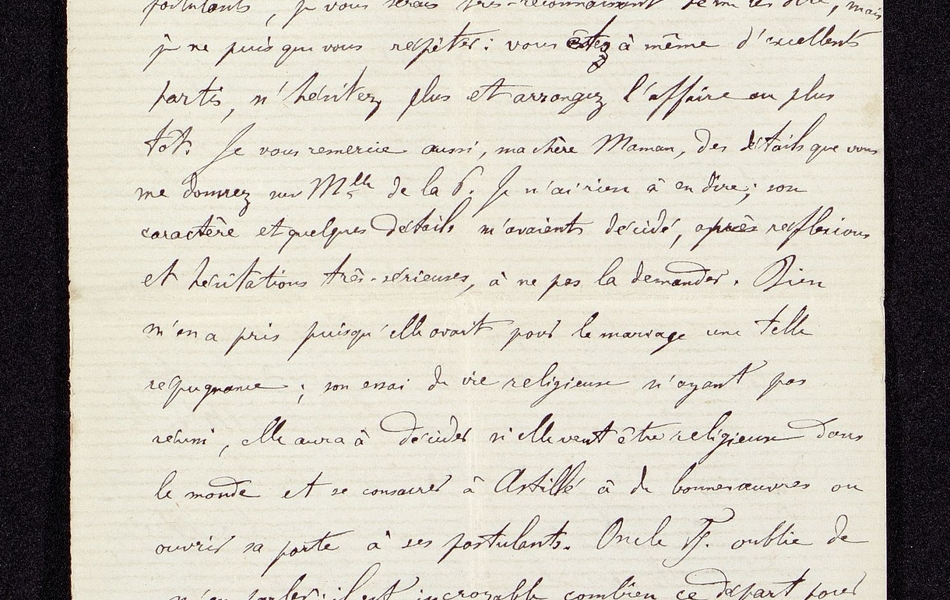 postulants, je vous serais très-reconnaissant de me les dire, mais
je ne puis que vous répéter : vous êtes à même d'excellents
partis, n'hésitez plus et arrangez l'affaire au plus
tôt. Je vous remercie aussi, ma chère Maman, des détails que vous
me donnez sur Mlle de la P. Je n'ai rien à en dire ; son
caractère et quelques détails m'avaient décidé, après réflexions
et hésitations très-sérieuses, à ne pas la demander. Bien
m'en a pris puisqu'elle avait pour le mariage une telle
répugnance ; son essai de vie religieuse n'ayant pas
réussi, elle aura à décider si elle veut être religieuse dans
le monde et se consacrer à Astillé à de bonnes œuvres ou
ouvrir sa porte à ses postulants. Oncle Th. oublie de
m'en parler ; il est incroyable combien ce départ pour